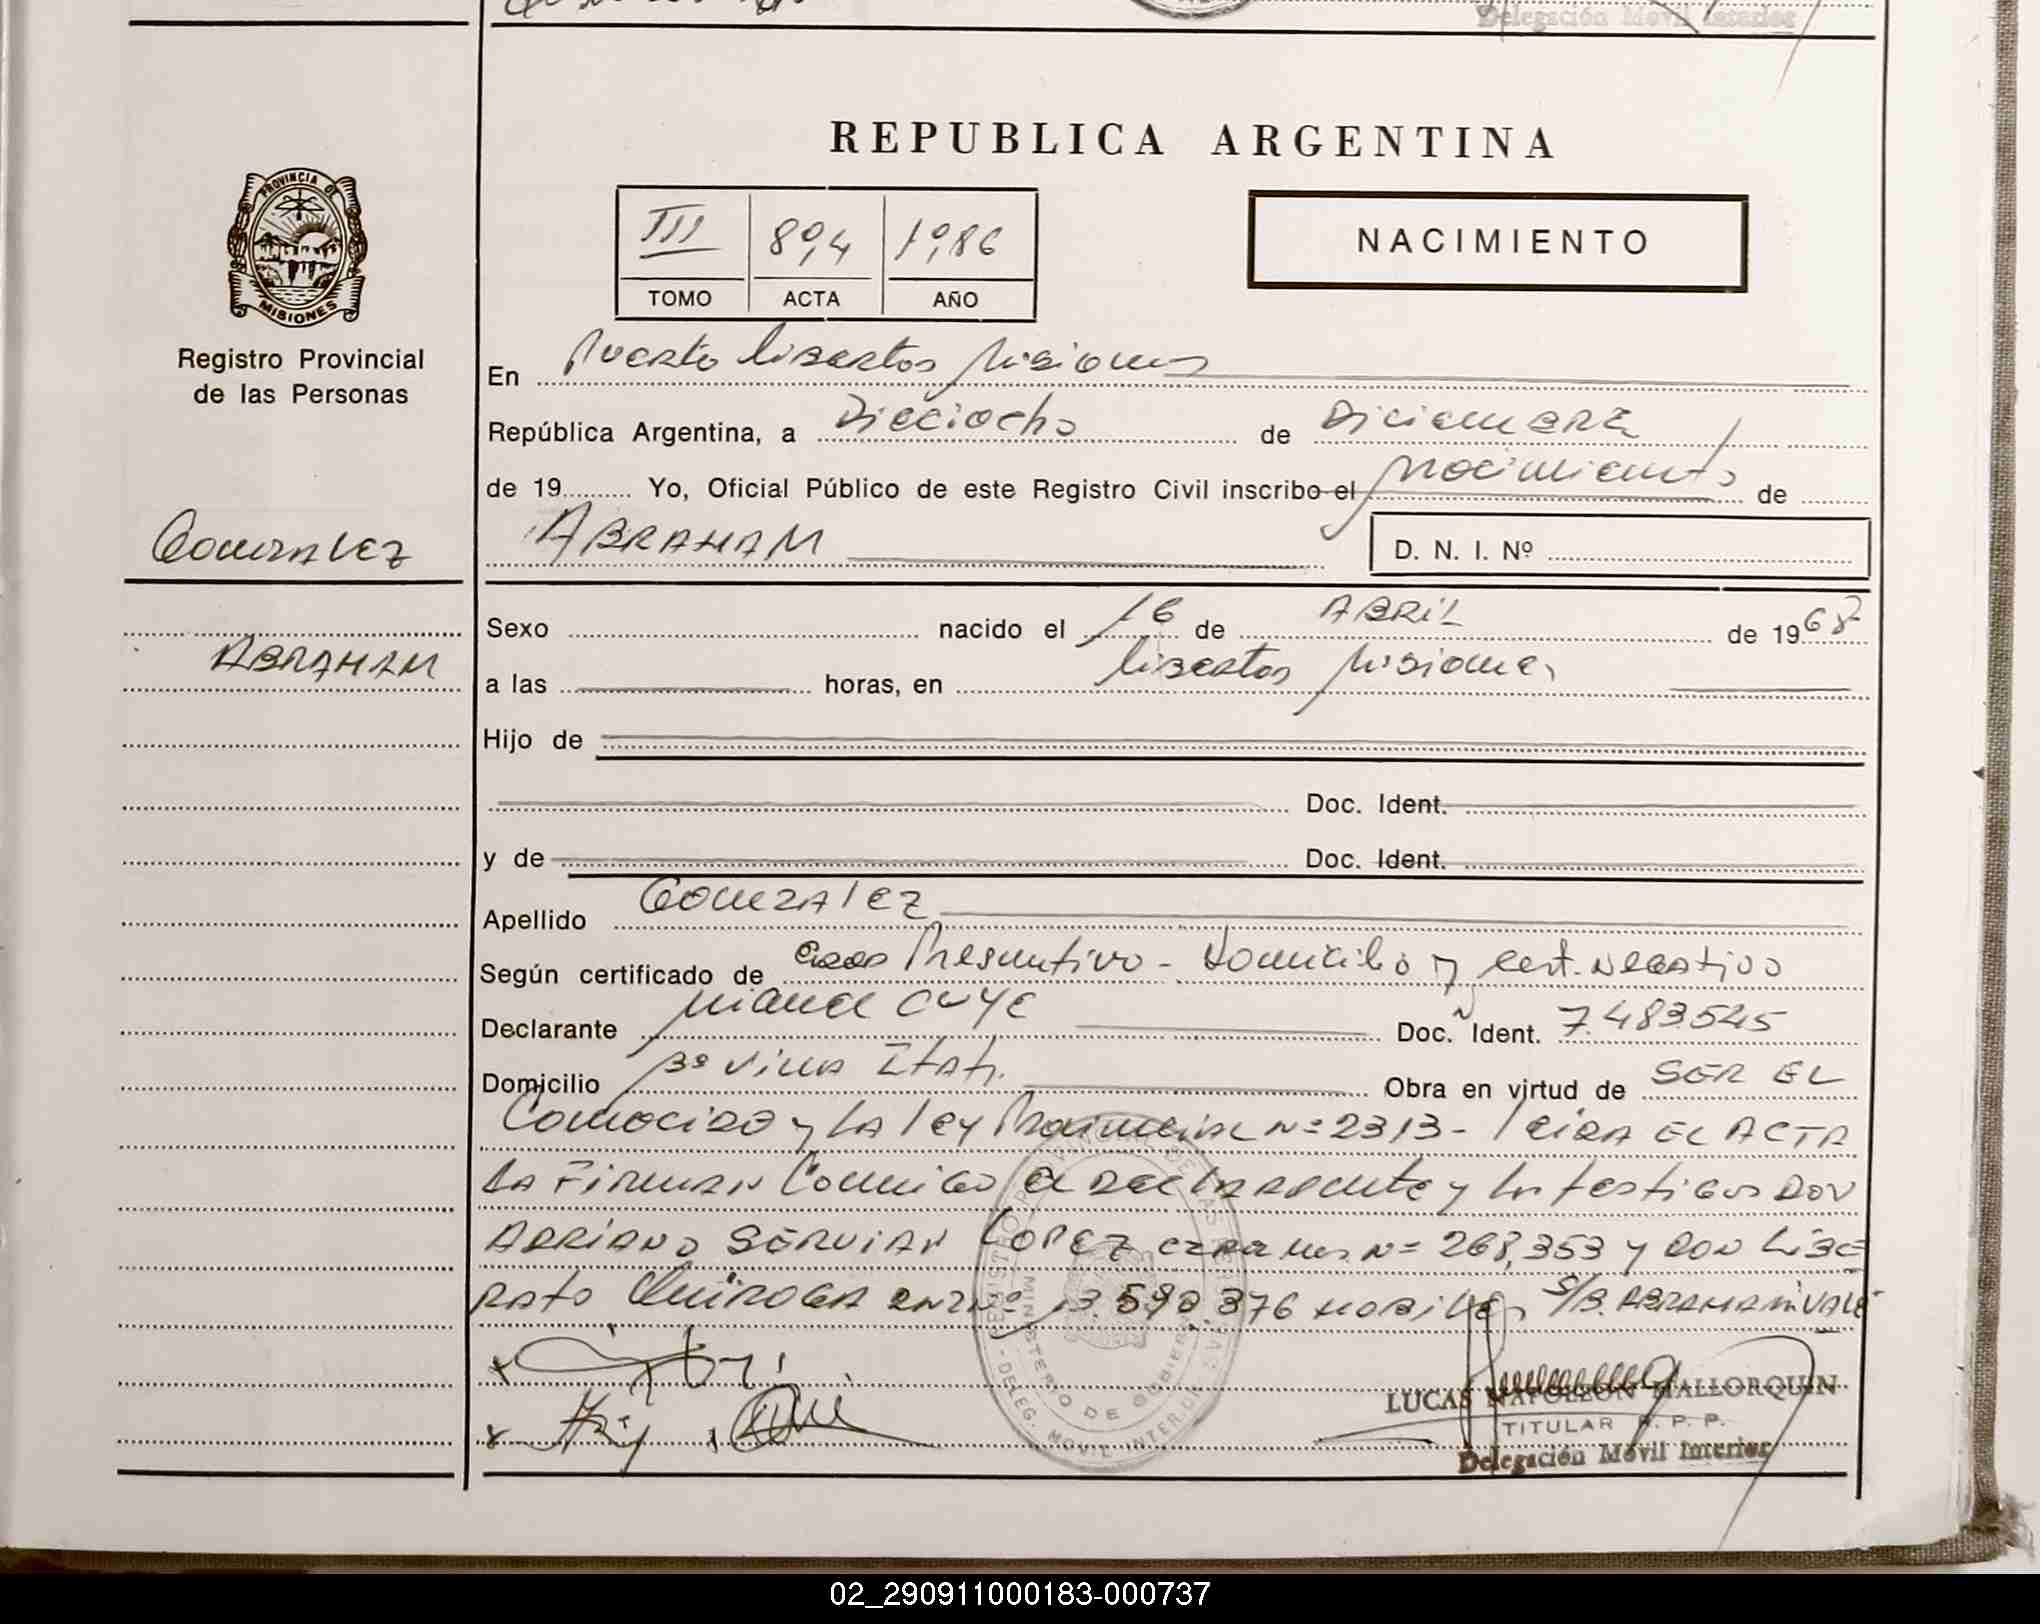 Delegación Movil Interior
REPUBLICA ARGENTINA
PROVINCIA DE
MISIONES
III 894 1986
TOMO ACTA AÑO
NACIMIENTO
Registro Provincial
de las Personas
En Puerto Libertad Misiones
República Argentina, a Dieciocho de Diciembre
de 19 Yo, Oficial Público de este Registro Civil inscribo el nacimiento de
Gonzalez
ABRAHAM D. N. I. Nº
Sexo nacido el 16 de ABRIL de 1968
ABRAHAM
a las horas, en Libertad Misiones
Hijo de
Doc. Ident.
y de Doc. Ident.
Apellido GONZALEZ
Según certificado de Presuntivo - Domicilio y cert. Negativo
Declarante Doc. Ident. 7.483.545
Domicilio Bº Villa Itati. Obra en virtud de SER EL
Conocido y LA ley Provincial Nº 2313 - leida EL ACTA
LA Firman Conmigo el declarante y los testigos DON
ADRIANO SERVIAN LOPEZ Nº 268,353 y DON LIBE
RATO QUIROGA 590.376 HABILES S/B. ABRAHAM VALE
LUCAS NAPOLEON MALLORQUIN
TITULAR R. P. P.
Delegación Móvil Interior
02_290911000183-000737